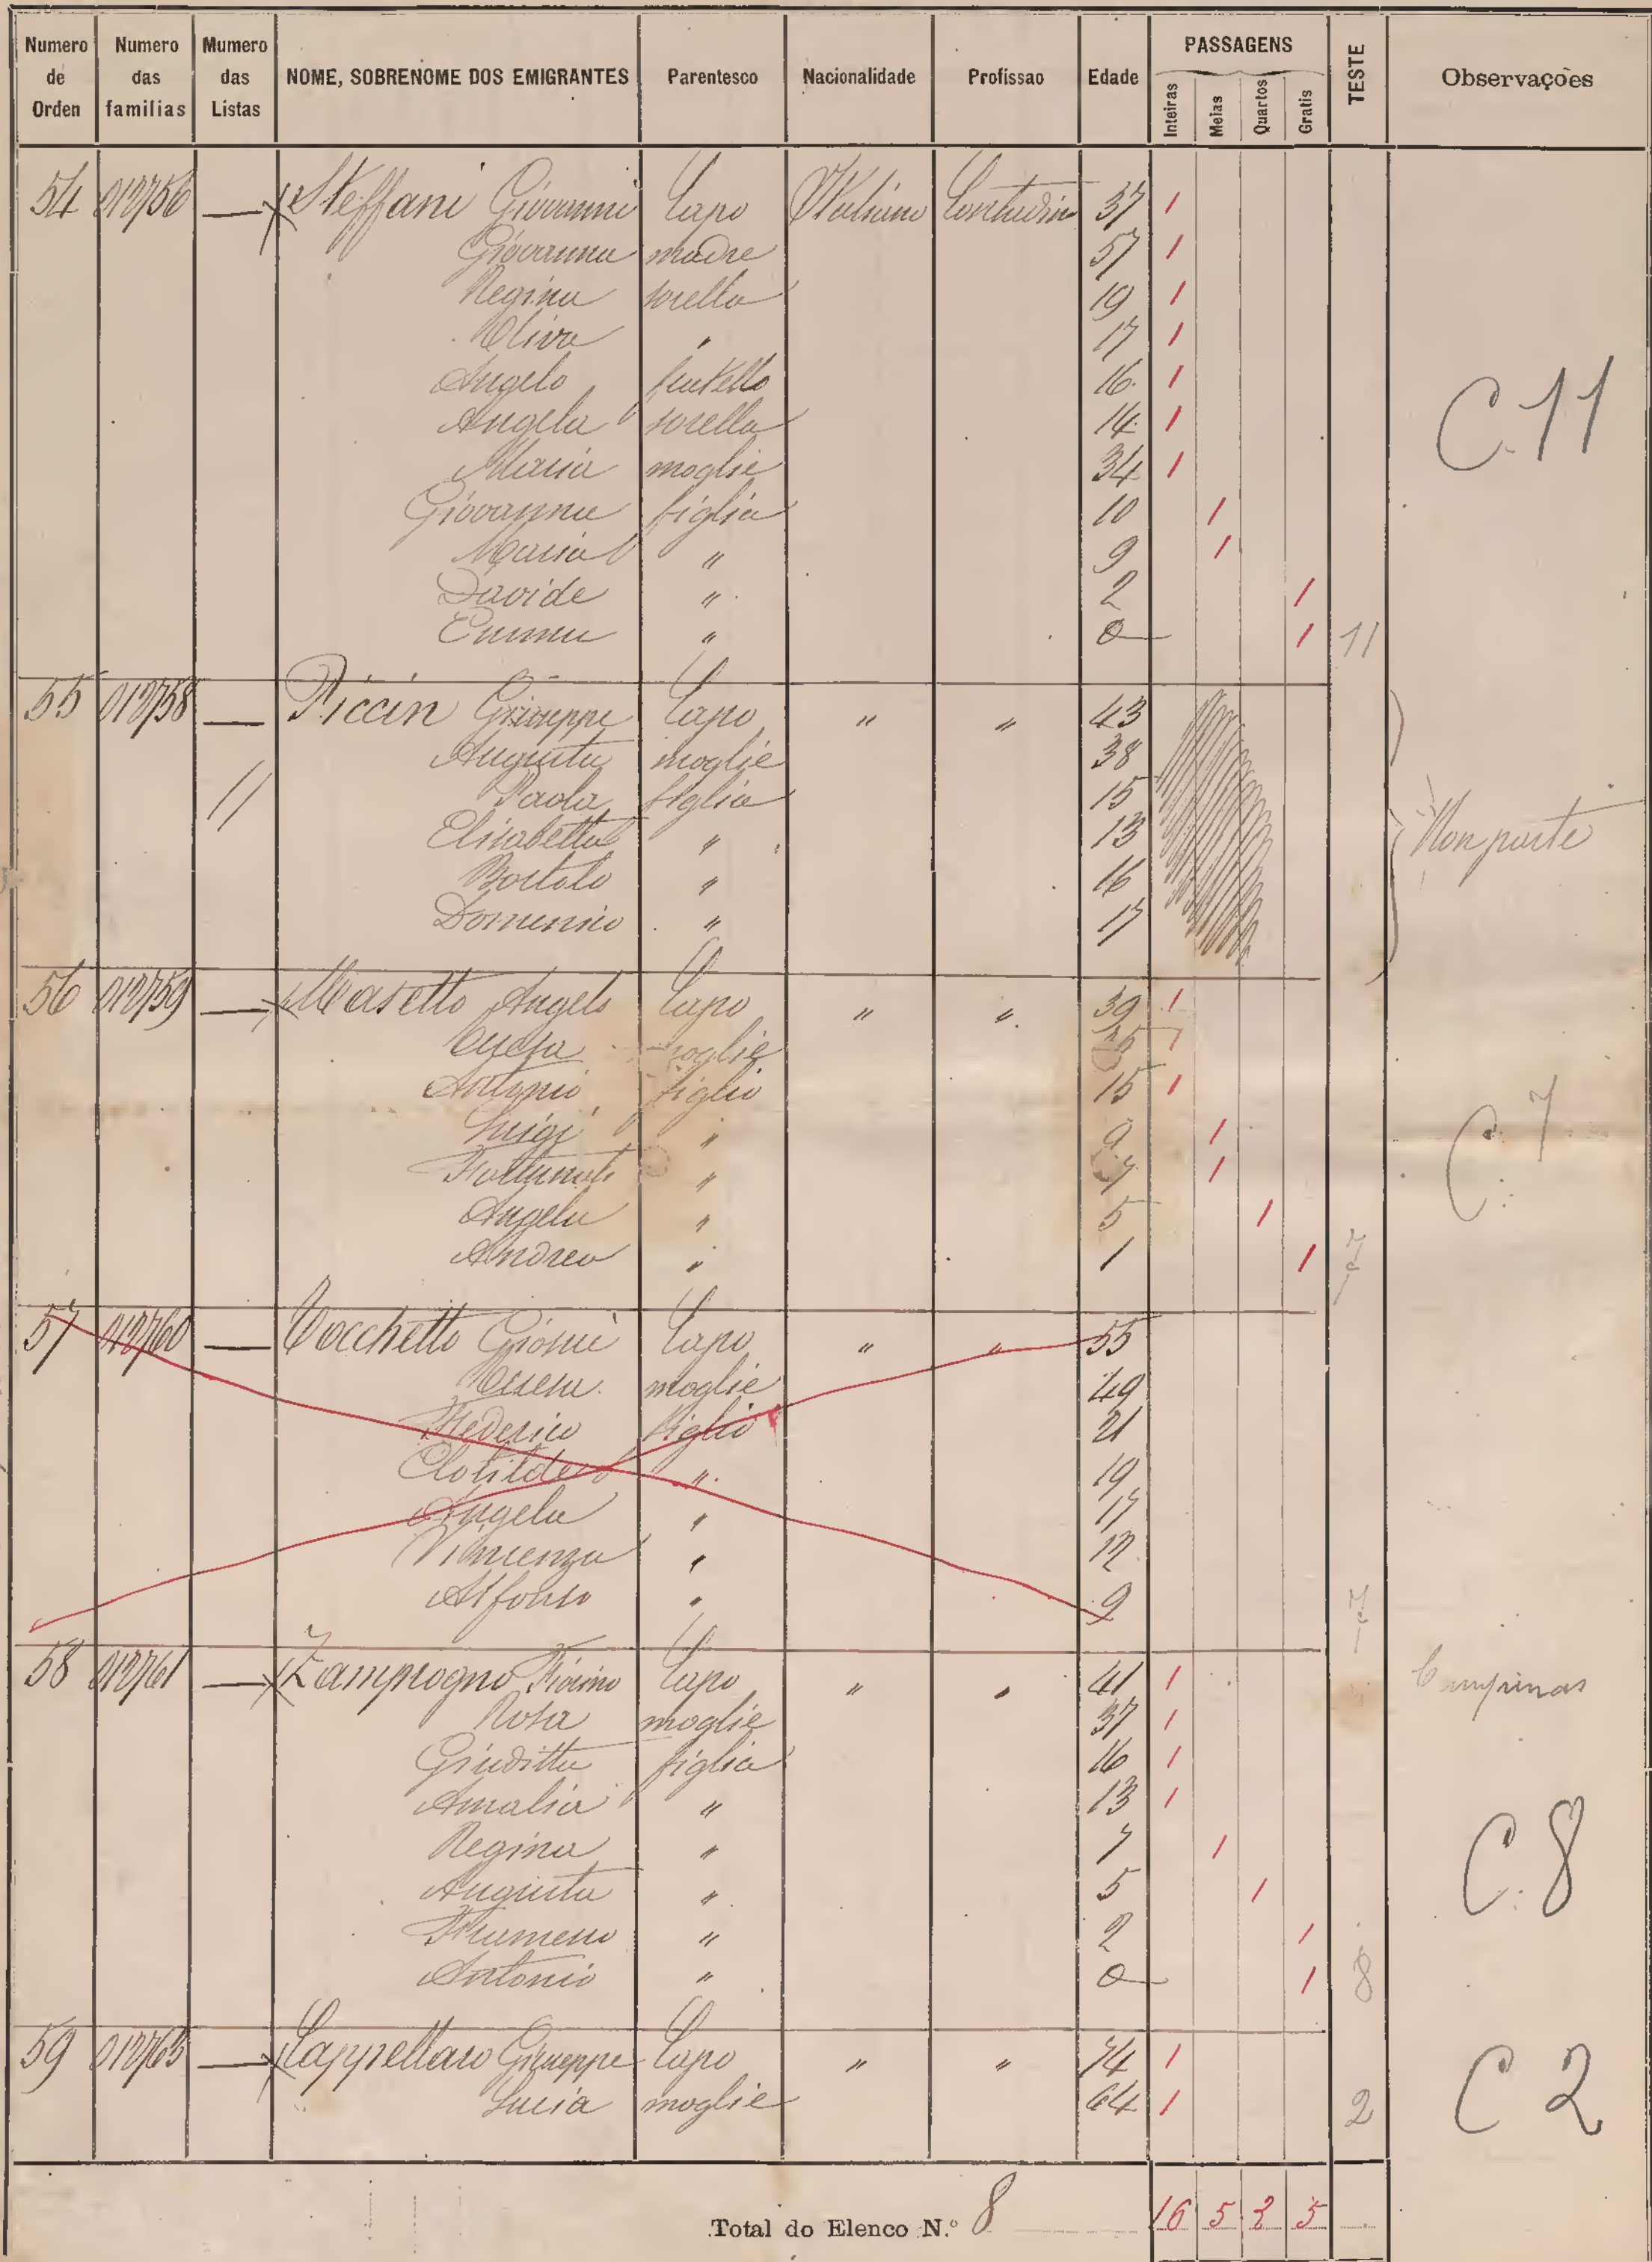 Numero de Orden | Numero das familias | Mumero das Listas | NOME, SOBRENOME DOS EMIGRANTES | Parentesco | Nacionalidade | Profissao | Edade | PASSAGENS Inteiras | Meias | Quartos | Gratis | TESTE | Observações
54 012756 — Steffani Giovanni Capo Italiano Contadin 37 1
Giovanna madre 57 1
Regina sorella 19 1
Oliva " 17 1
Angelo fratello 16 1
Angela sorella 14 1
Maria moglie 34 1
Giovanna figlia 10 1
Maria " 9 1
Davide " 2 1
Emma " 0 1 11
C. 11
55 012758 — Piccin Giuseppe Capo " " 43
Augusta moglie 38
Paola figlia 15
Elisabetta " 13
Bortolo " 16
Domenico " 17
Non parte
56 012759 — Masetto Angelo Capo " " 39 1
Teresa moglie 35 1
Antonio figlio 15 1
Luigi " 9 1
Fortunato " 7 1
Angela " 5 1
Andrea " 1 1 7
C. 7
57 012760 — Vocchetto Giosuè Capo " " 55
Teresa moglie 49
Federico figlio 21
Clotilde " 19
Angela " 17
Vincenza " 12
Alfonso " 9 7
58 012761 — Zamprogno Fiorino Capo " " 41 1 Campinas
Rosa moglie 37 1
Giuditta figlia 16 1
Amalia " 13 1
Regina " 7 1
Augusta " 5 1
" 2 1
Antonio " 0 1 8
C. 8
59 012763 — Cappellaro Giuseppe Capo " " 74 1
Lucia moglie 64 1 2
C 2
Total do Elenco N.º 8 16 5 2 5